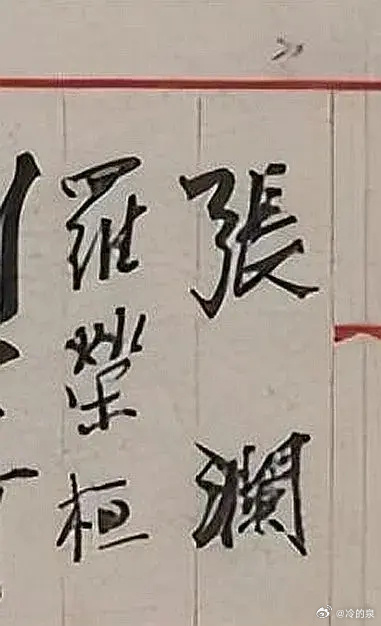 張瀾
羅榮桓
@冷的泉